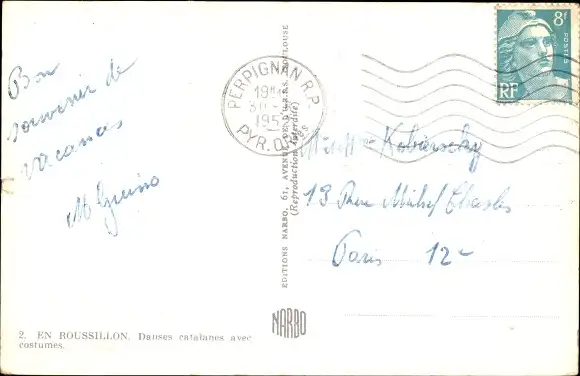 Bon
souvenir de
vacances
PERPIGNAN R.P.
PYR. ORles
8f
POSTES
RF
EDITIONS NARBO, 61, AVENUE TOULOUSE
(Reproduction interdite)
Kobiersky
13 Rue Michel Chasles
Paris 12e
NARBO
2. EN ROUSSILLON. Danses catalanes avec
costumes.